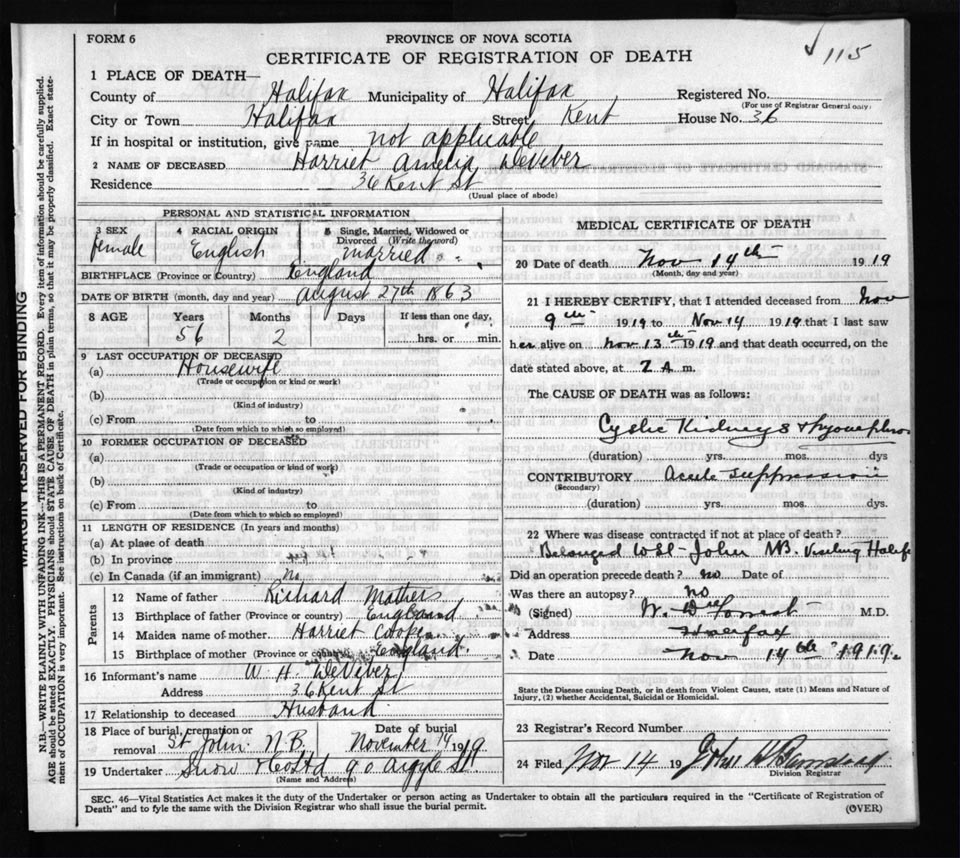 FORM 6
PROVINCE OF NOVA SCOTIA
115
CERTIFICATE OF REGISTRATION OF DEATH
1 PLACE OF DEATH—
County of Halifax Municipality of Halifax Registered No.
(For use of Registrar General only)
City or Town Halifax Street Kent House No. 36
If in hospital or institution, give name not applicable
2 NAME OF DECEASED Harriet Amelia DeVeber
Residence 36 Kent St
(Usual place of abode)
PERSONAL AND STATISTICAL INFORMATION
3 SEX female 4 RACIAL ORIGIN English 5 Single, Married, Widowed or Divorced (Write the word) Married
BIRTHPLACE (Province or Country) England
DATE OF BIRTH (month, day and year) August 27th 1863
8 AGE Years Months Days If less than one day,
56 2 hrs. or min.
9 LAST OCCUPATION OF DECEASED
(a) Housewife
(Trade or occupation or kind of work)
(b)
(Kind of industry)
(c) From to
(Date from which to which so employed)
10 FORMER OCCUPATION OF DECEASED
(a)
(Trade or occupation or kind of work)
(b)
(Kind of industry)
(c) From to
(Date from which to which so employed)
11 LENGTH OF RESIDENCE (In years and months)
(a) At place of death
(b) In province
(c) In Canada (if an immigrant) No
Parents
12 Name of father Richard Mathers
13 Birthplace of father (Province or country) England
14 Maiden name of mother Harriet Cooper
15 Birthplace of mother (Province or country) England
16 Informant's name W. H. DeVeber
Address 36 Kent St
17 Relationship to deceased Husband
18 Place of burial, cremation or removal St. John N.B. Date of burial November 14 1919
19 Undertaker Snow & Co Ltd 90 Argyle St
(Name and Address)
MEDICAL CERTIFICATE OF DEATH
20 Date of death Nov 14th 1919
(Month, day and year)
21 I HEREBY CERTIFY, that I attended deceased from Nov
9th 1919 to Nov 14 1919 that I last saw
her alive on Nov 13th 1919 and that death occurred, on the
date stated above, at 2 A. m.
The CAUSE OF DEATH was as follows:
Cystic Kidneys &
(duration) yrs. mos. dys
CONTRIBUTORY Acute suppression
(Secondary)
(duration) yrs. mos. dys.
22 Where was disease contracted if not at place of death?
Belonged to St John NB. Visiting Halifx
Did an operation precede death? no Date of
Was there an autopsy? no
(Signed) W. D. Forrest M.D.
Address Halifax
Date Nov 14th 1919.
State the Disease causing Death, or in death from Violent Causes, state (1) Means and Nature of
Injury, (2) whether Accidental, Suicidal or Homicidal.
23 Registrar's Record Number
24 Filed Nov 14 19
Division Registrar
SEC. 46—Vital Statistics Act makes it the duty of the Undertaker or person acting as Undertaker to obtain all the particulars required in the "Certificate of Registration of
Death" and to fyle the same with the Division Registrar who shall issue the burial permit.
(OVER)
MARGIN RESERVED FOR BINDING
N.B.—WRITE PLAINLY WITH UNFADING INK—THIS IS A PERMANENT RECORD. Every item of information should be carefully supplied.
AGE should be stated EXACTLY. PHYSICIANS should STATE CAUSE OF DEATH in plain terms, so that it may be properly classified. Exact state-
ment of OCCUPATION is very important. See instructions on back of Certificate.